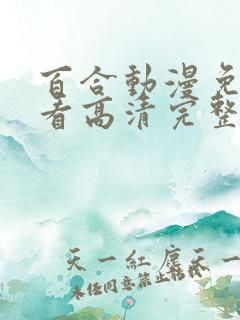 百合動漫免
看高清完整
天一紅塵天一
未任同意禁止轉載